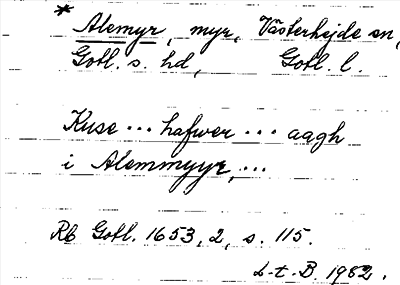 * Alemyr, myr, Västerhejde sn,
Gotl. s. hd, Gotl. l.
Kuse ... hafwer ... aagh
i Alemmyyr, ...
Rb Gotl. 1653, 2, s. 115.
L-t. B. 1982.